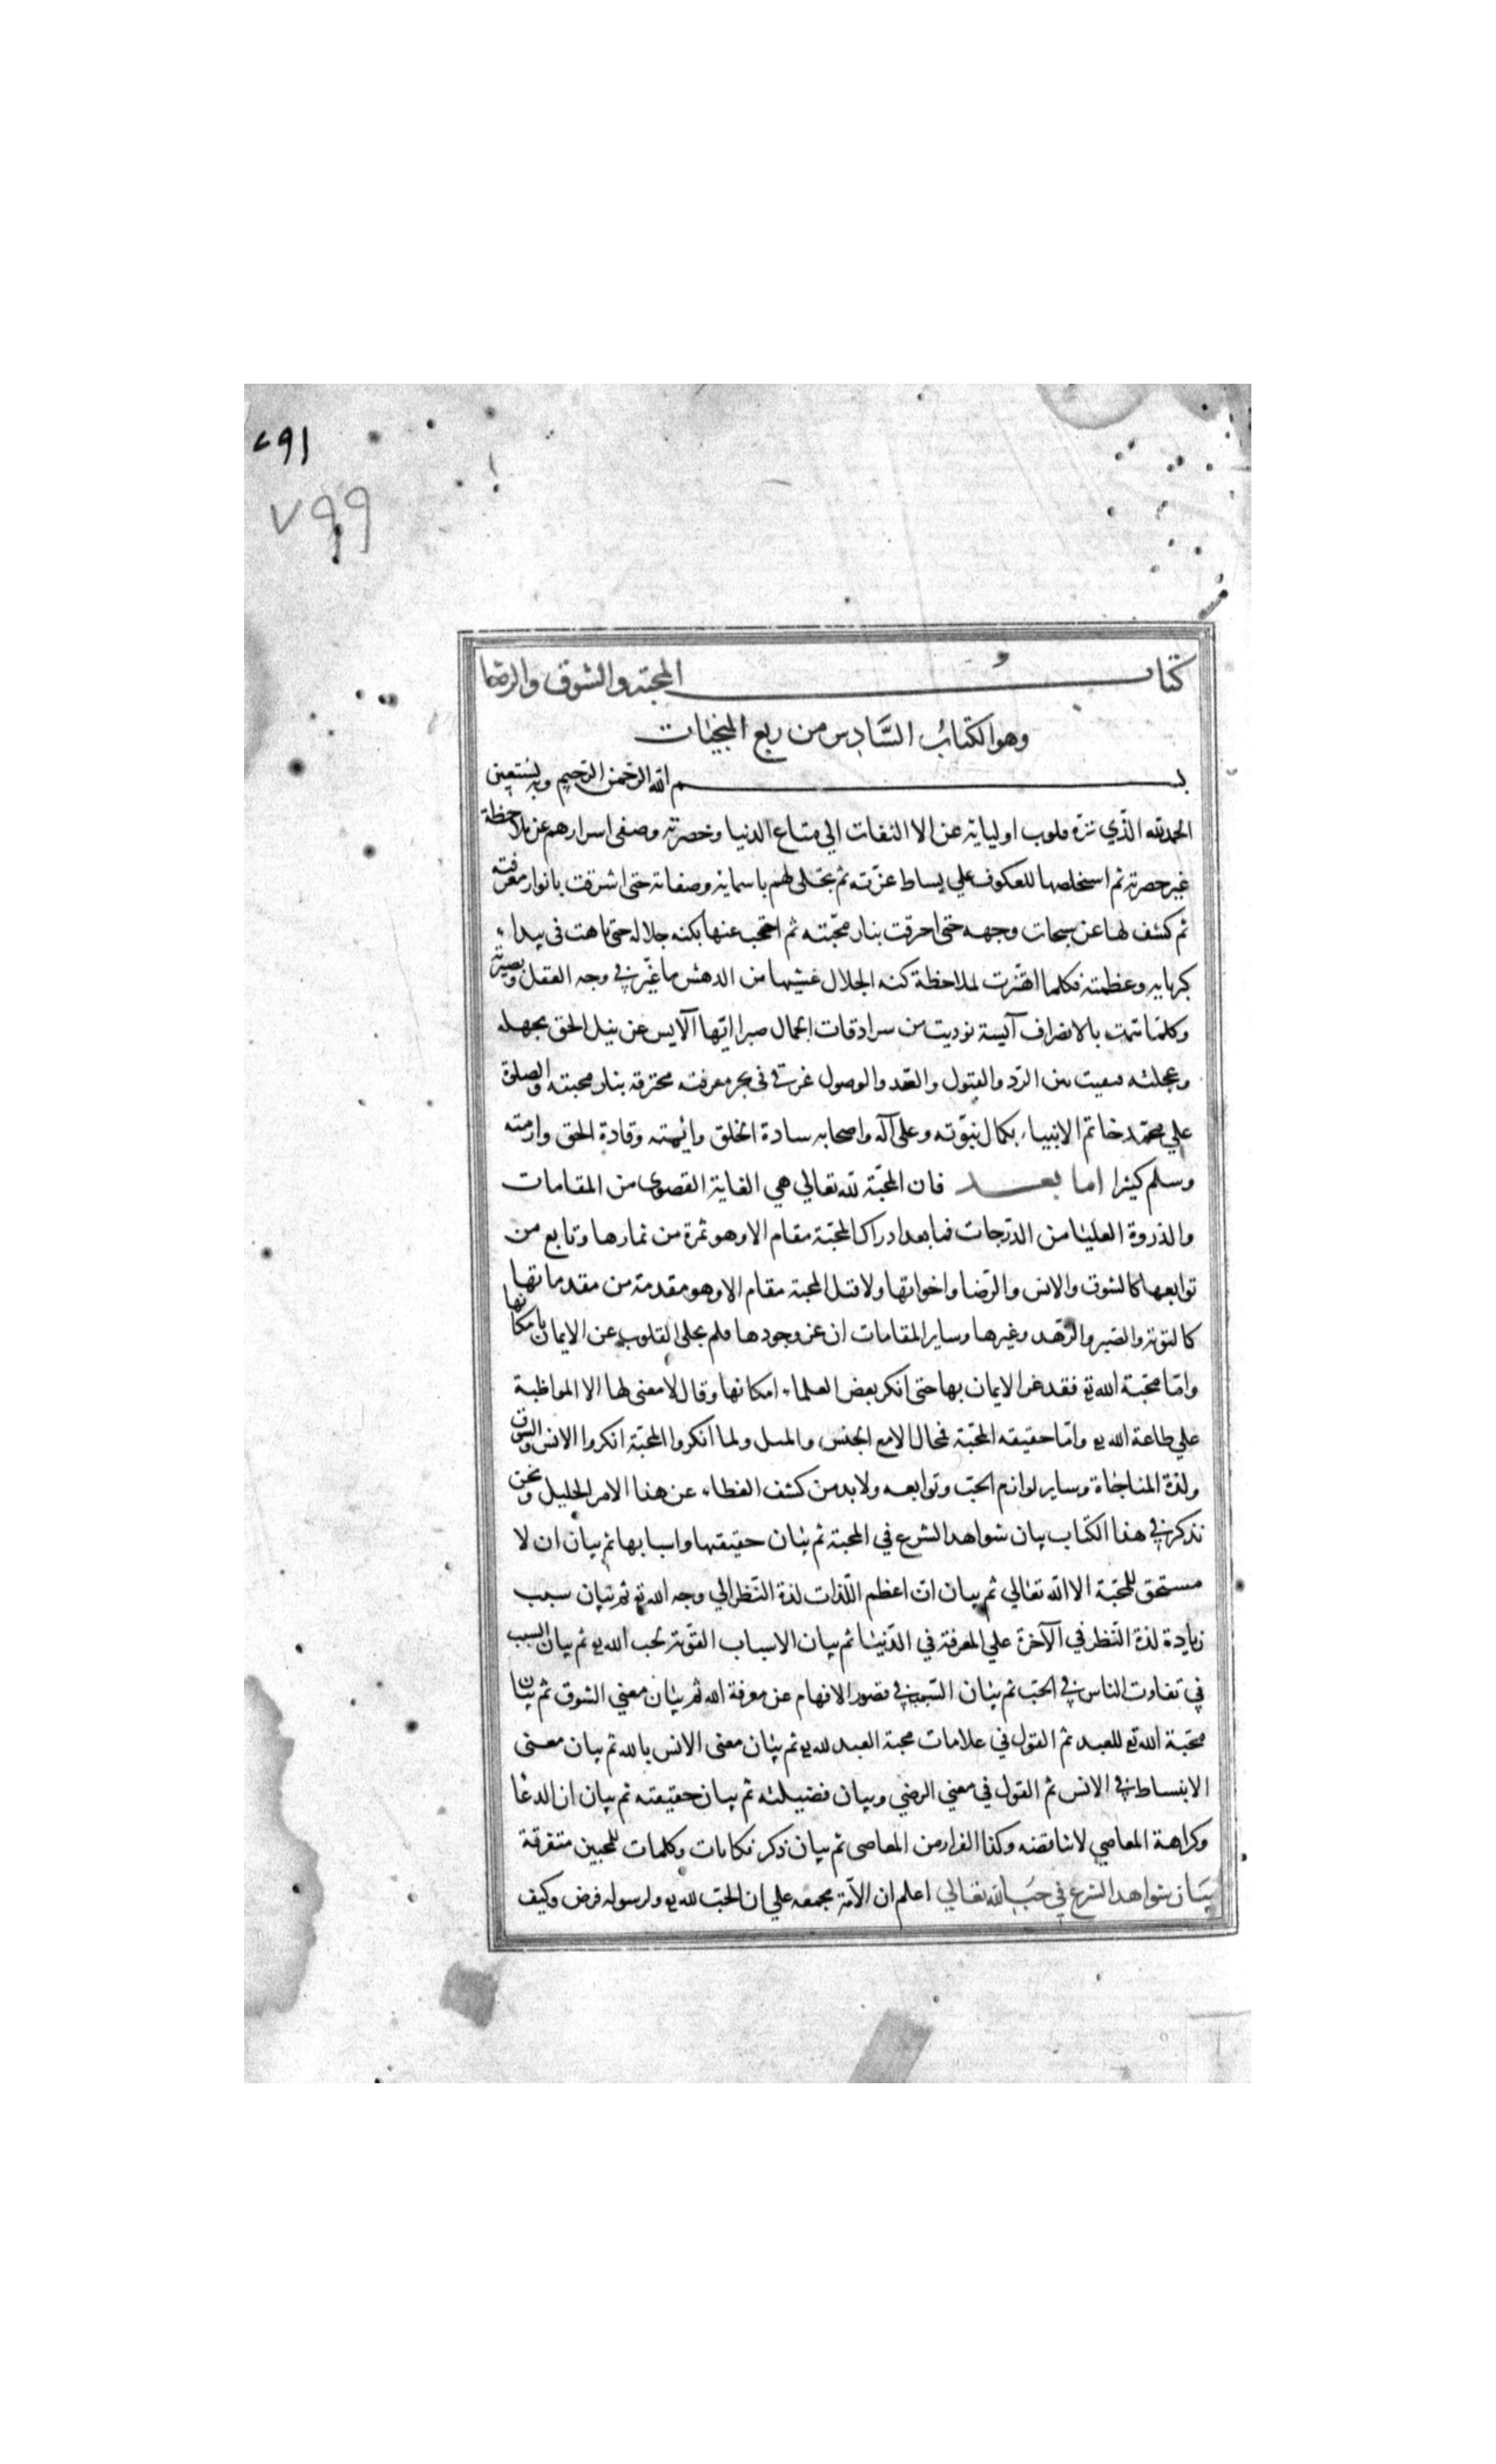 ٧٩١
٧٩٩
كتاب المحبة والشوق والرضا
وهو الكتاب السادس من ربع المنجيات
بسم الله الرحمن الرحيم وبه نستعين
الحمدلله الذي نزه قلوب اوليايه عن الالتفات الي متاع الدنيا وخضرته وصفى اسرارهم عن ملاحظة
غير حضرته ثم استخلصها للعكوف علي بساط عزته ثم تجلى لهم باسمايه وصفاته حتى اشرقت بانوار معرفته
ثم كشف لها عن سبحات وجهه حتى احرقت بنار محبته ثم احتجب عنها بكنه جلاله حتى تاهت في بيداء
كبريايه وعظمته فكلما اهتزت لملاحظة كنه الجلال غشيها من الدهش ما غبر في وجه العقل وبصيرته
وكلما همت بالانصراف آيسة نوديت من سرادقات الجمال صبرا ايها الآيس عن نيل الحق بجهله
وعجلته فبقيت بين الرد والقبول والصد والوصول غرقى في بحر معرفته محترقة بنار محبته والصلوة
علي محمد خاتم الانبياء بكمال نبوته وعلى آله واصحابه سادة الخلق وائمته وقادة الحق وازمته
وسلم كثيرا اما بعد فان المحبة لله تعالي هي الغاية القصوى من المقامات
والذروة العليا من الدرجات فما بعد ادراك المحبة مقام الا وهو ثمرة من ثمارها وتابع من
توابعها كالشوق والانس والرضا واخواتها ولا قبل المحبة مقام الا وهو مقدمة من مقدماتها
كالتوبة والصبر والزهد وغيرها وساير المقامات ان عز وجودها فلم تخل القلوب عن الايمان بامكانها
واما محبة الله تع فقد عز الايمان بها حتى انكر بعض العلماء امكانها وقال لا معنى لها الا المواظبة
علي طاعة الله تع واما حقيقه المحبة فمحال الا مع الجنس والمثل ولما انكروا المحبة انكروا الانس والشوق
ولذة المناجاة وساير لوازم الحب وتوابعه ولا بد من كشف الغطاء عن هذا الامر الجليل ونحن
نذكر في هذا الكتاب بيان شواهد الشرع في المحبة ثم بيان حقيقتها واسبابها ثم بيان ان لا
مستحق للمحبة الا الله تعالي ثم بيان ان اعظم اللذات لذة النظر الي وجه الله تع ثم بيان سبب
زيادة لذة النظر في الآخرة علي المعرفة في الدنيا ثم بيان الاسباب القوية لحب الله تع ثم بيان السبب
في تفاوت الناس في الحب ثم بيان السبب في قصور الافهام عن معرفة الله ثم بيان معني الشوق ثم بيان
محبة الله تع للعبد ثم القول في علامات محبة العبد لله تع ثم بيان معنى الانس بالله ثم بيان معنى
الانبساط في الانس ثم القول في معني الرضي وبيان فضيلته ثم بيان حقيقته ثم بيان ان الدعا
وكراهة المعاصي لا تناقضه وكذا الفرار من المعاصى ثم بيان ذكر حكايات وكلمات للمحبين متفرقة
بيان شواهد الشرع في حب الله تعالي اعلم ان الامة مجمعه علي ان الحب لله تع ولرسوله فرض وكيف